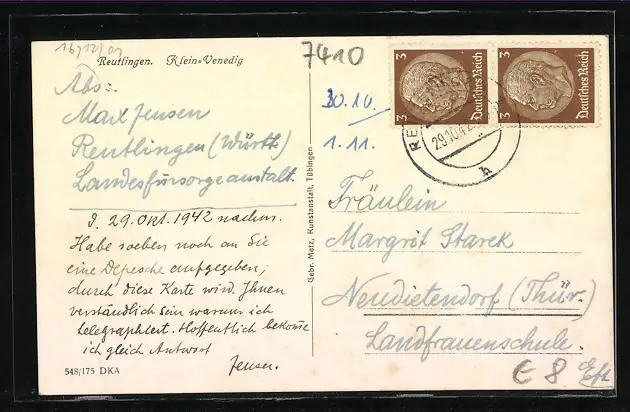 16/12/01
Reutlingen. Klein=Venedig
7410
Abs:
Max Jensen
Reutlingen (Württ)
Landesfürsorgeanstalt.
d. 29. Okt. 1942 nachm.
Habe soeben noch an Sie
eine Depesche aufgegeben;
durch diese Karte wird Ihnen
verständlich sein warum ich
telegraphiert. Hoffentlich bekomme
ich gleich Antwort
Jensen.
548/175 DKA
Gebr. Metz, Kunstanstalt, Tübingen
30.10.
1.11.
3 Deutsches Reich
3 Deutsches Reich
29.10.42
Fräulein
Margrit Starek
Neudietendorf (Thür.)
Landfrauenschule.
€ 8